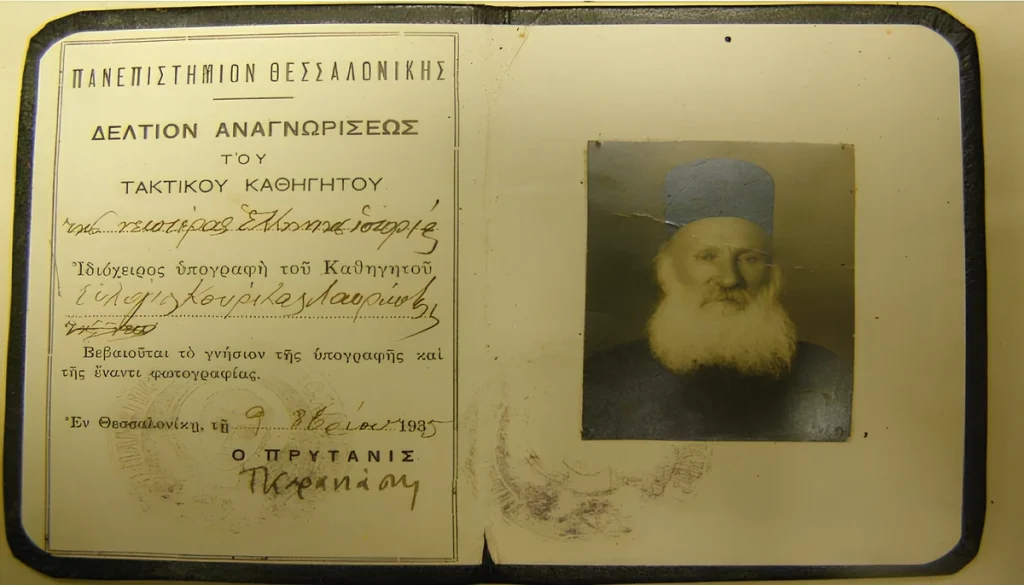 ΠΑΝΕΠΙΣΤΗΜΙΟΝ ΘΕΣΣΑΛΟΝΙΚΗΣ
ΔΕΛΤΙΟΝ ΑΝΑΓΝΩΡΙΣΕΩΣ
ΤΟΥ
ΤΑΚΤΙΚΟΥ ΚΑΘΗΓΗΤΟΥ
τῆς νεωτέρας Ἑλληνικῆς ἱστορίας
Ἰδιόχειρος ὑπογραφὴ τοῦ Καθηγητοῦ
Εὐλόγιος Κουρίλας Λαυριώτης
Βεβαιοῦται τὸ γνήσιον τῆς ὑπογραφῆς καὶ
τῆς ἔναντι φωτογραφίας.
Ἐν Θεσσαλονίκῃ, τῇ 9 8βρίου 1935
Ο ΠΡΥΤΑΝΙΣ